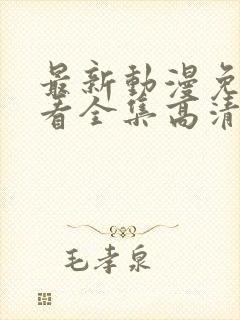 最新動漫免
看全集高清
毛孝泉